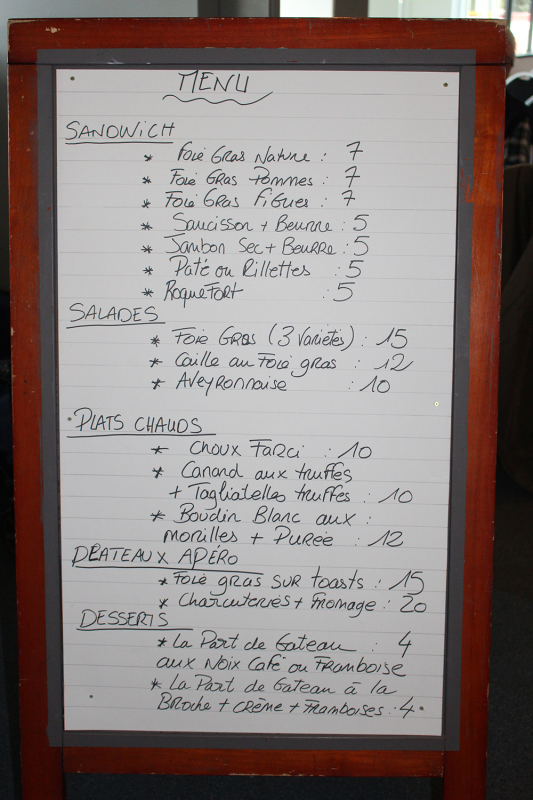 MENU
SANDWICH
* Foie Gras Nature : 7
* Foie Gras Pommes : 7
* Foie Gras Figues : 7
* Saucisson + Beurre : 5
* Jambon Sec + Beurre : 5
* Paté ou Rillettes : 5
* Roquefort : 5
SALADES
* Foie Gras (3 Variétés) : 15
* Caille au Foie gras : 12
* Aveyronnaise : 10
PLATS CHAUDS
* Choux Farci : 10
* Canard aux truffes
+ Tagliatelles truffes : 10
* Boudin Blanc aux :
morilles + Purée : 12
PLATEAUX APÉRO
* Foie gras sur toasts : 15
* Charcuteries + Fromage : 20
DESSERTS
* La Part de Gateau : 4
aux Noix Café ou Framboise
* La Part de Gateau à la
Broche + crème + Framboises : 4